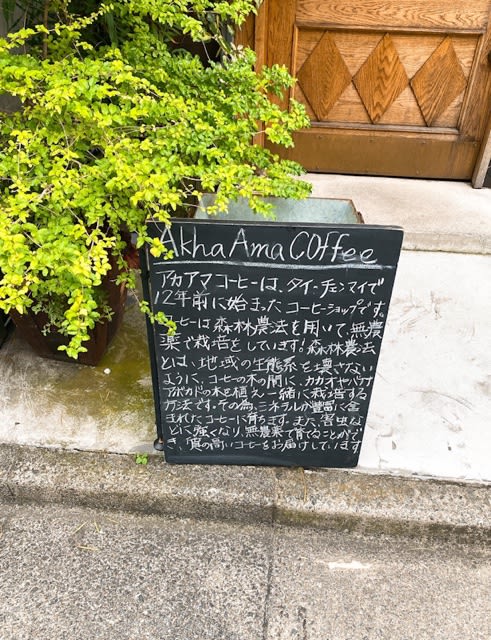 Akha Ama Coffee
アカアマコーヒーは、タイ・チェンマイで
12年前に始まったコーヒーショップです。
コーヒーは森林農法を用いて、無農
薬で栽培をしています！森林農法
とは、地域の生態系を壊さない
ように、コーヒーの木の間に、カカオやバナナ
アボカドの木を植え一緒に栽培する
方法です。その為、ミネラルが豊富に含
まれたコーヒーに育ちます。また、害虫な
どに強くなり、無農薬で育てることがで
き、質の高いコーヒーをお届けしています